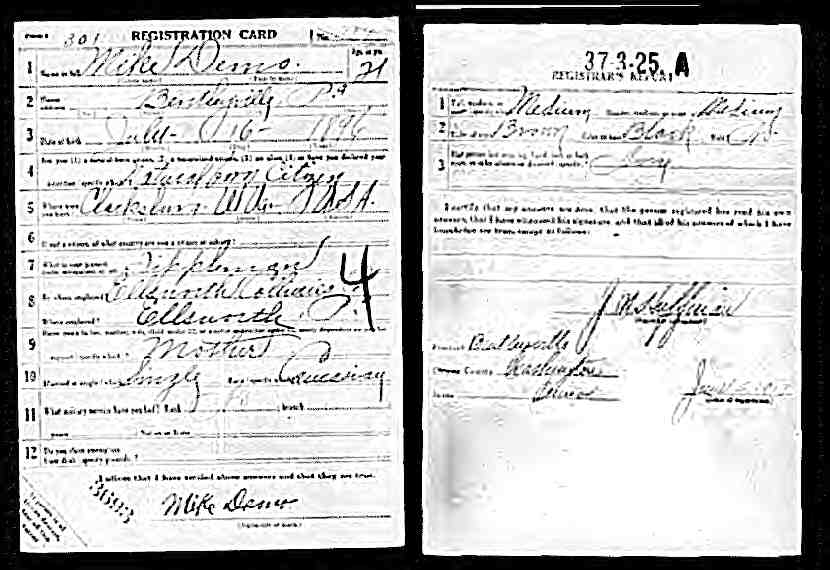 Form 1 301 REGISTRATION CARD No.
1 Name in full Mike Demo Age, in yrs. 21
2 Home address Bentleyville Pa
3 Date of birth July 16 1896
4 Are you (1) a natural-born citizen, (2) a naturalized citizen, (3) an alien, (4) or have you declared your intention (specify which)? Natural born Citizen
5 Where were you born? W Va. U.S.A.
6 If not a citizen, of what country are you a citizen or subject?
7 What is your present trade, occupation, or office? Tippleman
8 By whom employed? Ellsworth Collieries Co
Where employed? Ellsworth Pa
4
9 Have you a father, mother, wife, child under 12, or a sister or brother under 12, solely dependent on you for support (specify which)? Mother
10 Married or single (which)? Single Race (specify which)? Caucasian
11 What military service have you had? Rank ; branch
years ; Nation or State
12 Do you claim exemption from draft (specify grounds)?
I affirm that I have verified above answers and that they are true.
Mike Demo
(Signature or mark)
37-3-25. A
REGISTRAR'S REPORT
1 Tall, medium, or short (specify which)? Medium Slender, medium, or stout (which)? Medium
2 Color of eyes? Brown Color of hair? Black Bald? No
3 Has person lost arm, leg, hand, foot, or both eyes, or is he otherwise disabled (specify)?
I certify that my answers are true, that the person registered has read his own answers, that I have witnessed his signature, and that all of his answers of which I have knowledge are true, except as follows:
(Signature of registrar)
Precinct Bentleyville
City or County Washington
State Penna
(Date of registration)